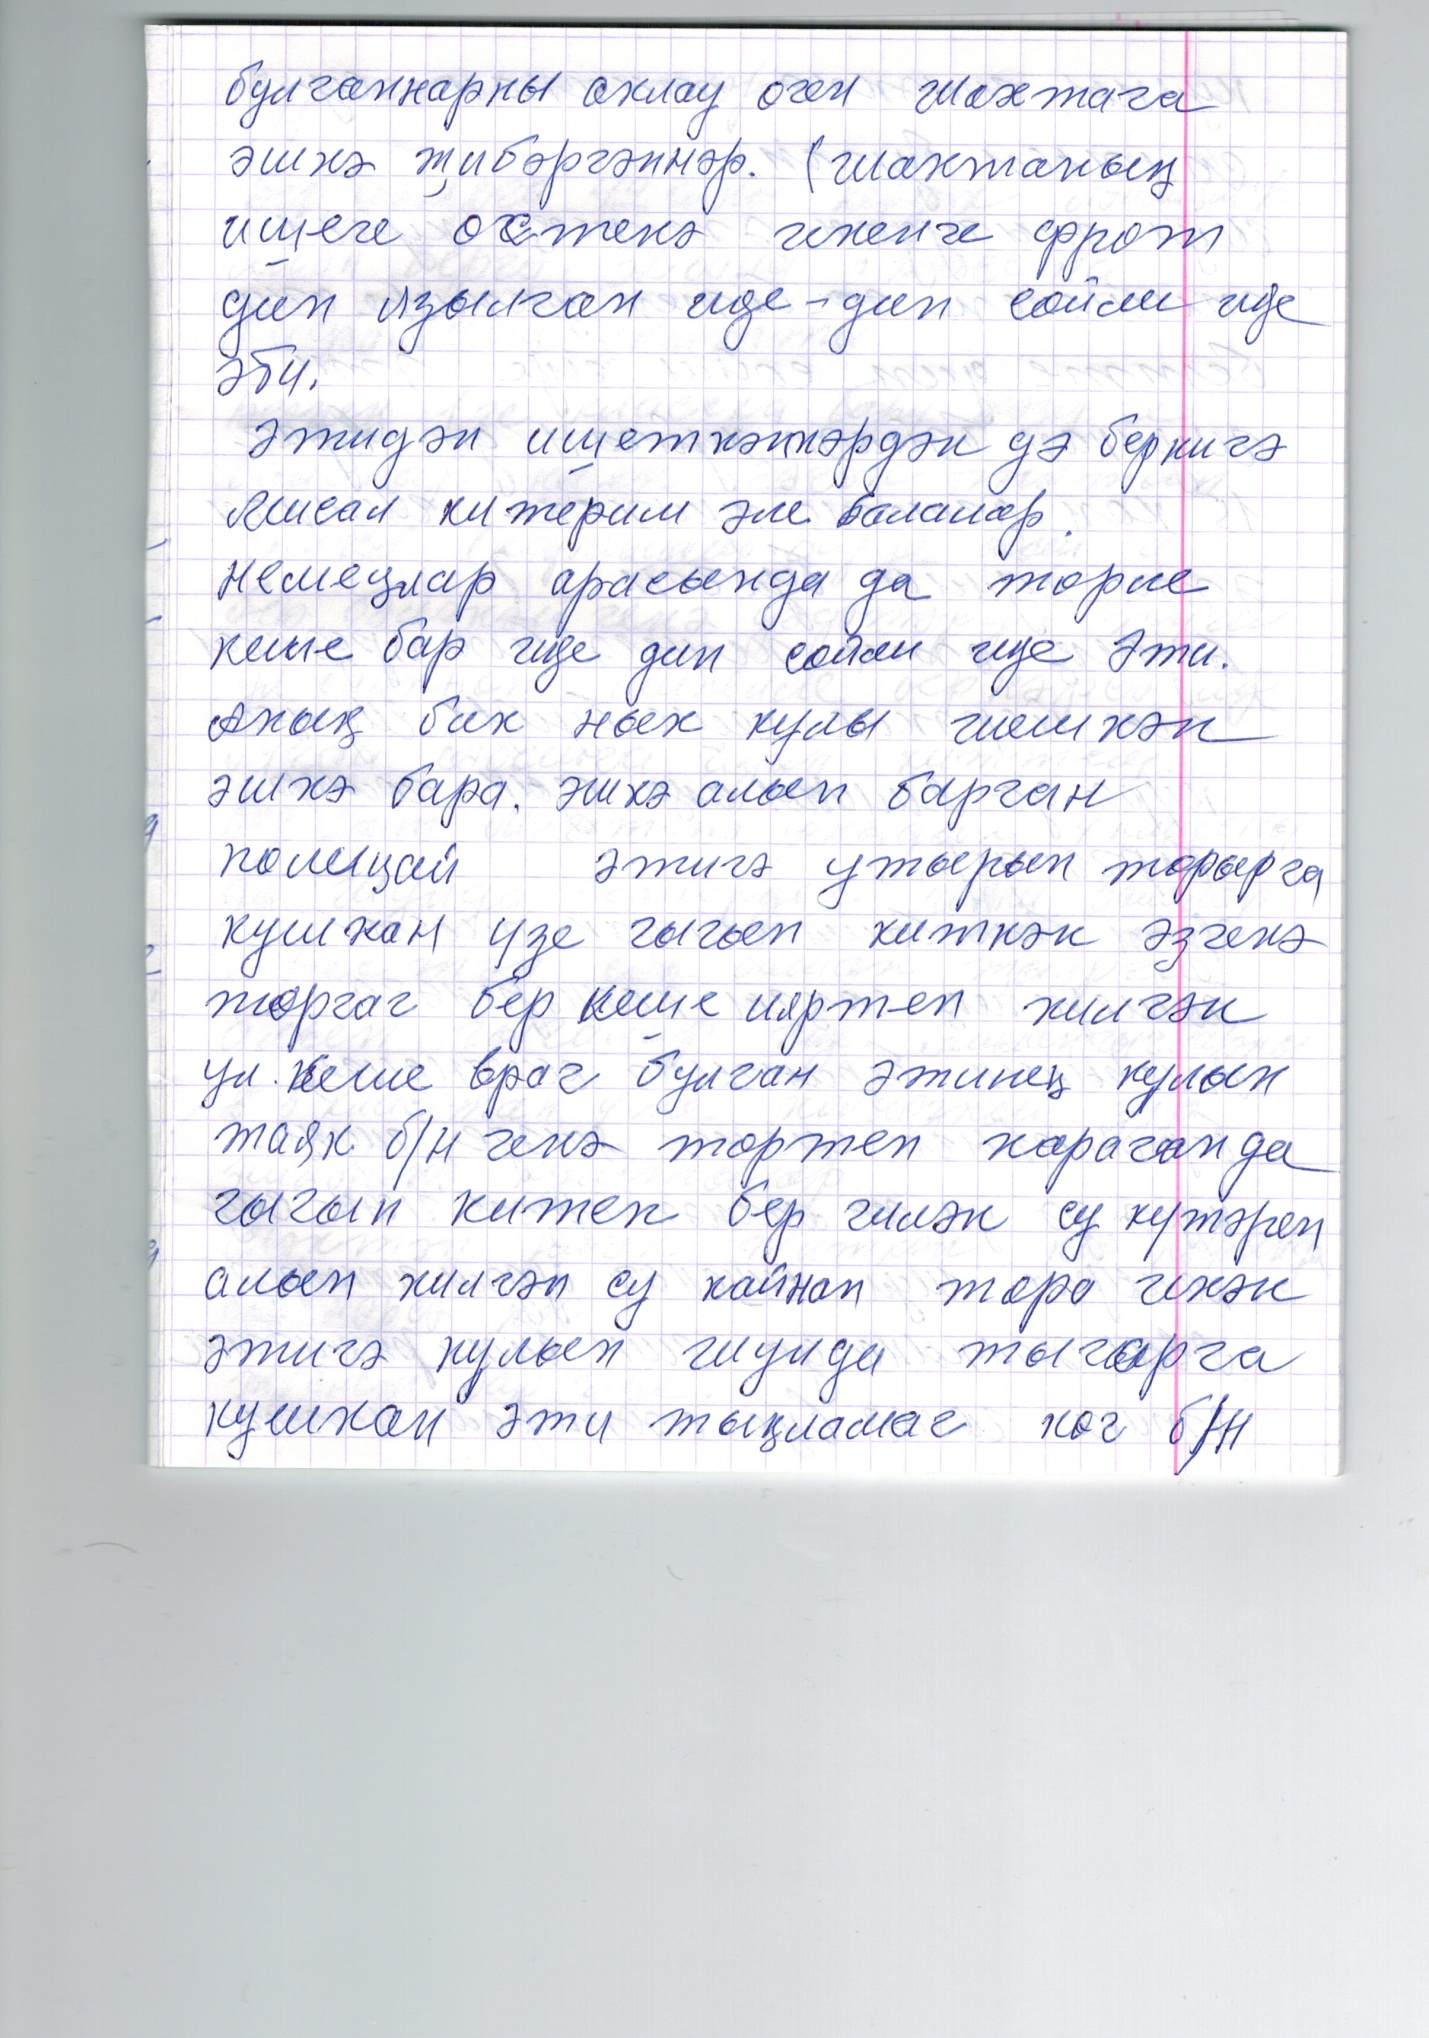 булганнарны аклау очен шахтага
эшкә җибәргәннәр. (шахтаның
ишеге остенә икенче фрот
дип язылган иде - дип сойли иде
әби.
Әтидән ишеткәннәрдән дә берничә
мисал китерим әле балалар.
немецлар арасында да торле
кеше бар иде дип сойли иде Әти.
Аның бик нык кулы шешкән
эшкә бара. эшкә алып барган
полицай әтигә утырып торырга
кушкан узе чыгып киткәк әзгенә
торгач бер кеше ияртеп килгән
ул кеше врач булган әтинең кулын
таяк б/н генә тортеп караганда
чыгып китеп бер чиләк су кутәреп
алып килгән су кайнап тора икән
әтигә кулын шунда тыгарга
кушкан әти тыңламагач коч б/н